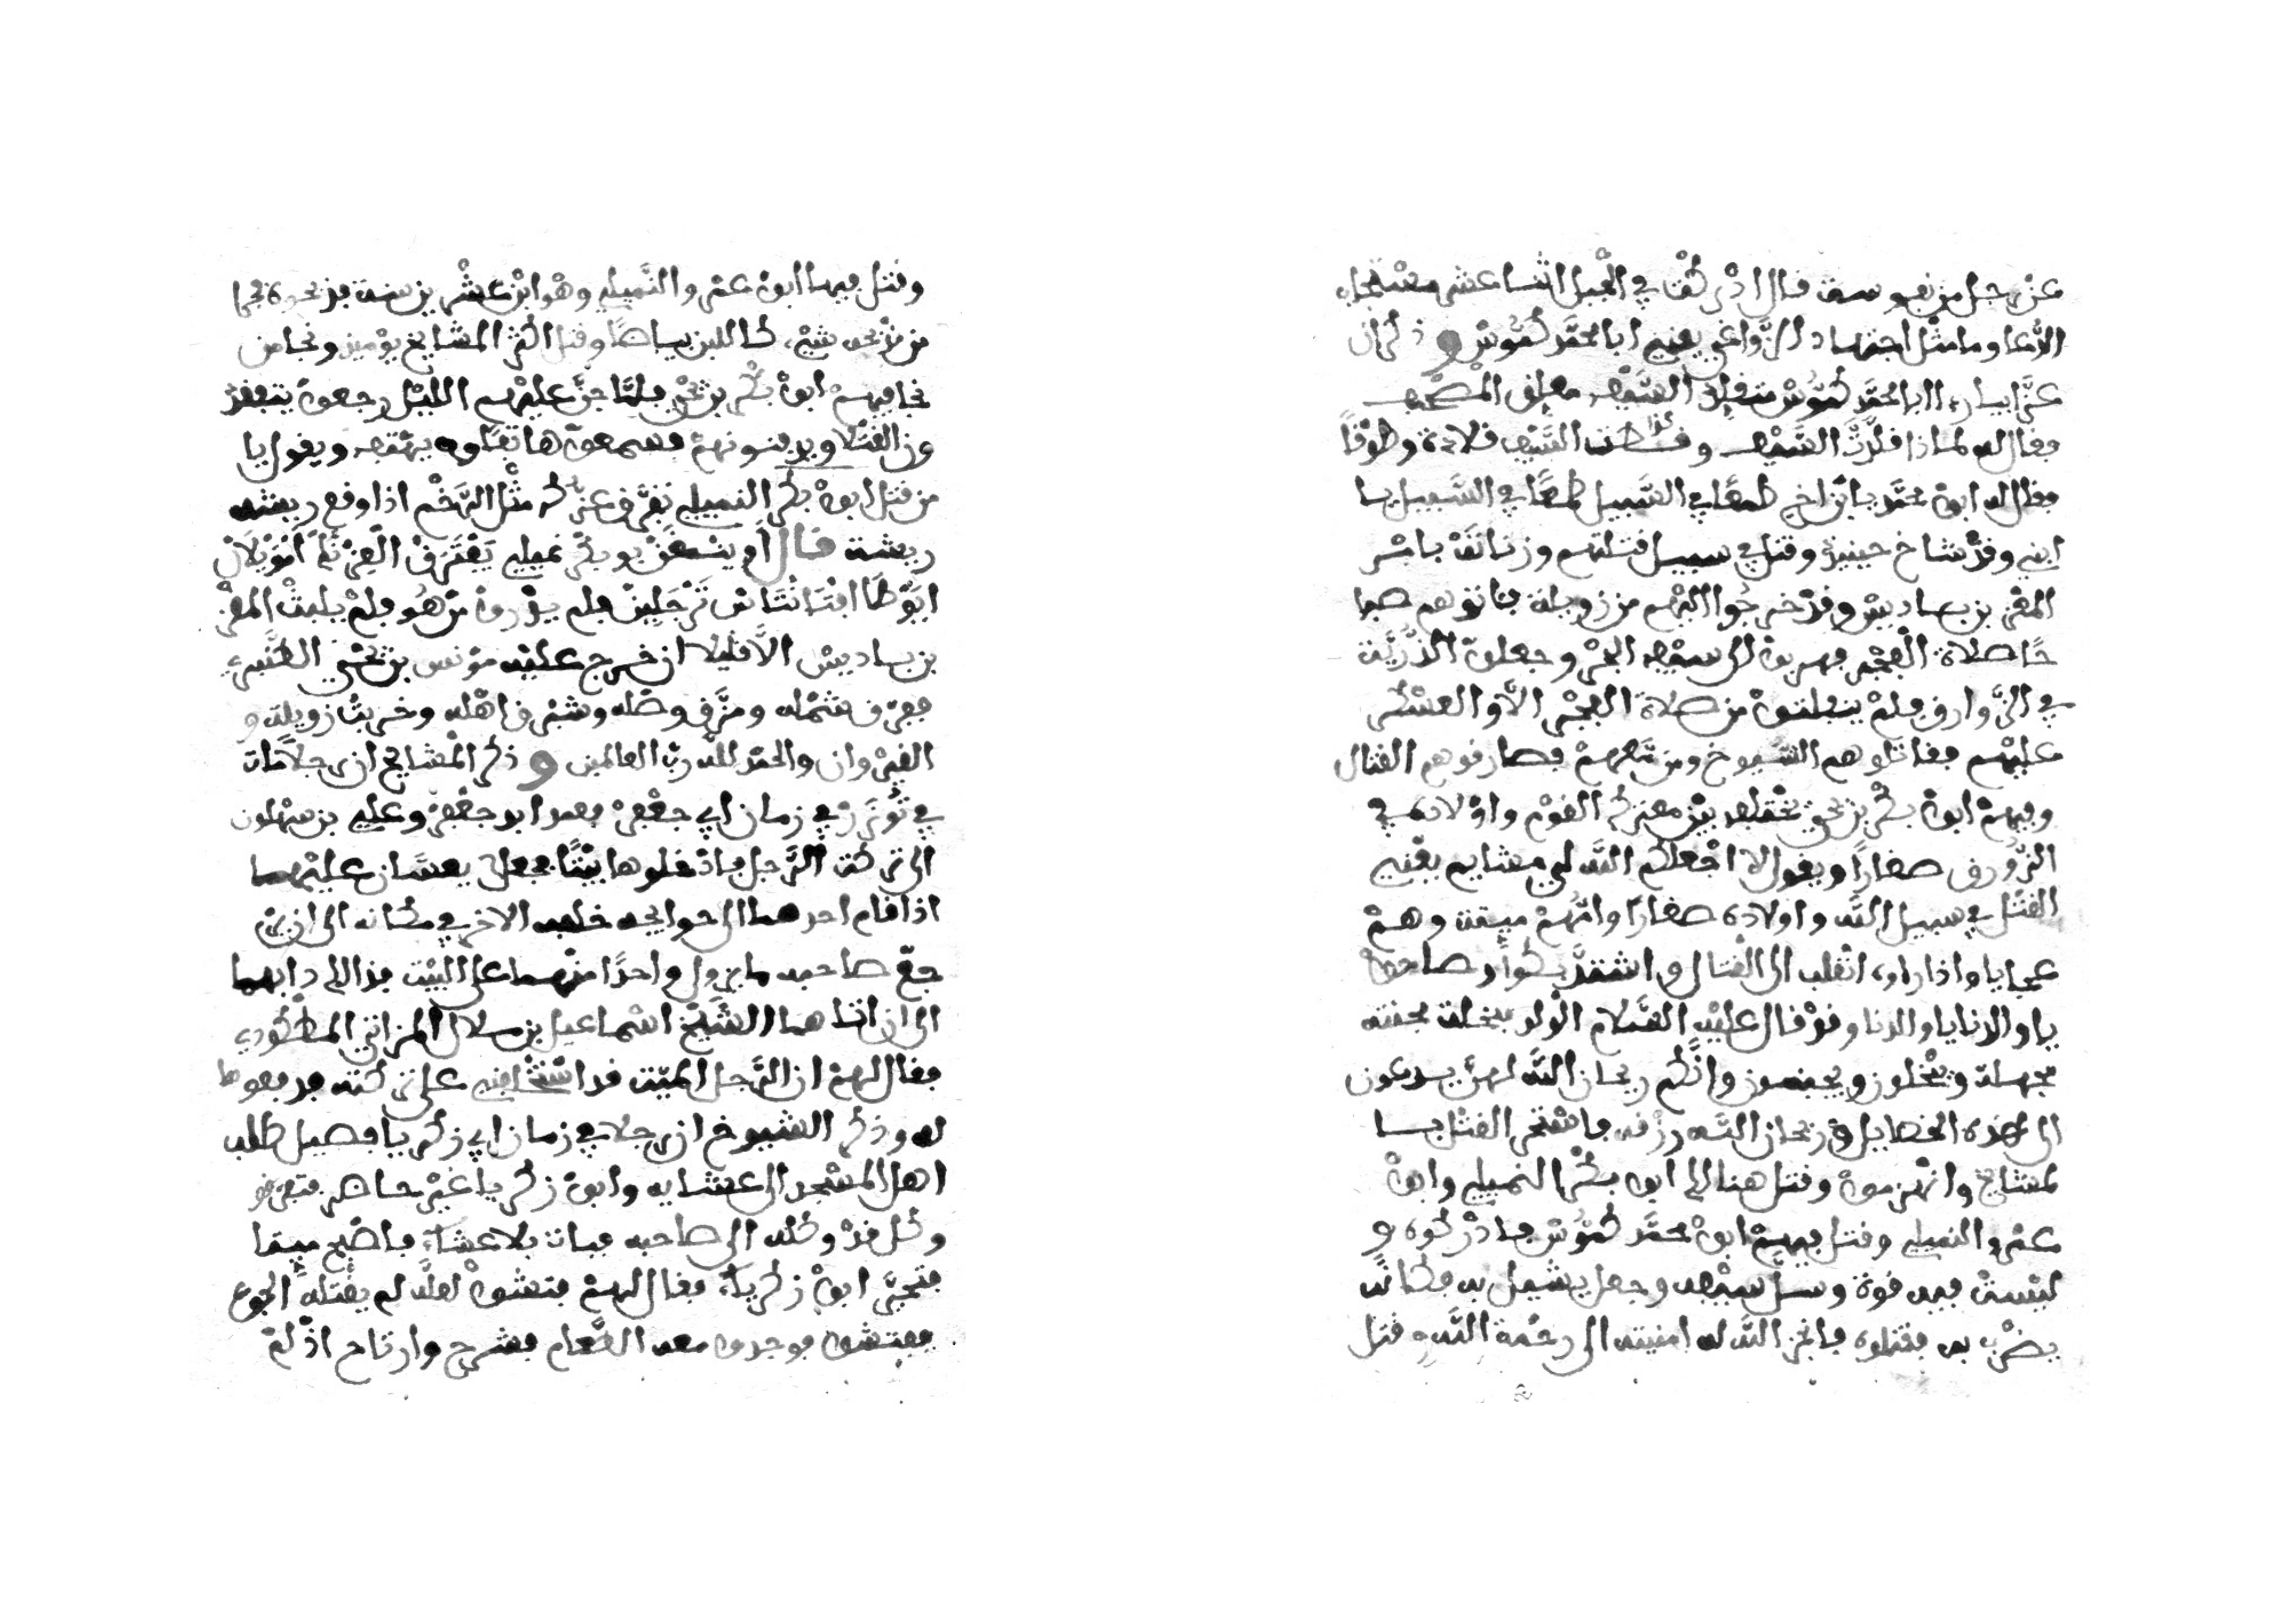 عن رجل من نفوسة قال ادركت في الجبل اثنا عشر مستجاب
الدعا وما مثل اجتهاد الزواغي يعني ابا محمد كموس وذكر ان
ابا محمد كموس متقلد السيف معلق المصحف
فقال له لماذا قلدت السيف وقد كانت السيف قلادة وطوقا
فقال له ابو محمد يا بن اخي طمعا في السبيل طمعا في السبيل يا
ابني وقد شاخ حينيذ وقتل في سبيل قتلتهم وزناتة باشر
المعز بن باديس وقد خرجوا اليهم من زويلة فاتوهم صبا
حا صلاة الفجر فهربوا الى سيف البحر وجعلوا الذرية
في الزوارق فلم ينفلتوا من صلاة الفجر الا والعسكر
عليهم فقاتلوهم الشيوخ ومن معهم فصادفوهم القتال
وفيهم ابو بكر بن يحيى يختلف بين معترك القوم واولاده في
الزورق صغارا ويقول لا اجعلكم الله لي مشايم يعني
القتل في سبيل الله واولاده صغارا وامهم ميتة وهم
عجايا واذا راوه انقلب الى القتال واشتد بكوا وصاحوا
يا والدنا يا والدنا وقد قال عليه السلام الولد مبخلة مجبنة
مجهلة وتبخلون وتجبنون وانكم ريحان الله لهن يدعون
الى هذه الخصايل وريحان الله رزقه فاستحر القتل با
لمشايخ وانهزموا وقتل هنالك ابو بكر النميلي وابو
عمرو النميلي وقتل فيهم ابو محمد كموس فادركوه و
ليست فيه قوة وسل سيفه وجعل يشيل به مكانه
يضرب به فقتلوه فانجز الله له امنيته الى رحمة الله قتل
وقتل فيها ابو عمرو النميلي وهو ابن عشرين سنة
من نحوه شيء كاللبن بياضا وقتل اكثر المشايخ يوميذ ونجا من
نجا فيهم ابو بكر بن يحيى فلما جن عليهم الليل رجعوا يتفقد
ون القتلا ويدفنونهم فسمعوا هاتفا يهتف ويقول يا
من قتل ابو بكر النميلي تفرق عز كم مثل الرخم اذا وقع ريشه
ريشة قال او ينسغن بو بكر نميلي يفترق العز نم انو يلان
ابو طا افتانتاس تزجلين فلم يدروا من هو فلم يلبث المعز
بن باديس الا قليلا ان خرج عليه مونس بن يحيى الطنبري
ففرق شمله ومزق وصله وشرق اهله وخربت زويلة و
القيروان والحمد لله رب العالمين وذكر المشايخ ان رجلا مات
في توزر في زمان ابي جعفر فعمد ابو جعفر وعلي بن سهلون
الى تركة الرجل فادخلوها بيتا فجعلا يعسان عليها
اذا قام احدهما الى حوايجه خلفه الاخر في مكانه الى ان ير
جع صاحبه ما يزول واحدا منهما على البيت فذالك دابهما
الى ان اتاهما الشيخ اسماعيل بن ملال المزاتي المطكودي
فقال لهم ان الرجل الميت قد استخلفني على تركته فدفعوها
له وذكر الشيوخ ان رجلا في زمان ابي زكريا فصيل طلب
اهل المسجد الى عشايه وابو زكريا غير حاضر فتفرقو
وكل قد وكله الى صاحبه فبات بلا عشاء فاصبح ميتا
فتحير ابو زكرياء فقال لهم فتشوا لعله لم يقتله الجوع
ففتشوه فوجدوا معه الطعام فشرح وارتاح اذ لم